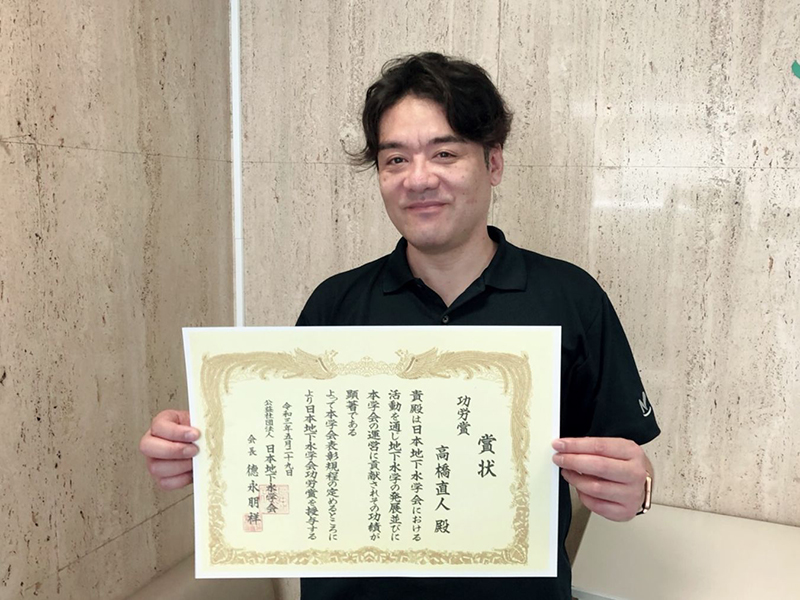 賞状
功労賞
高橋直人 殿
貴殿は日本地下水学会における
活動を通し地下水学の発展並びに
本学会の運営に貢献されその功績が
顕著である
よって本学会表彰規程の定めるところに
より日本地下水学会功労賞を授与する
令和三年五月二十九日
公益社団法人 日本地下水学会
会長 徳永朋祥